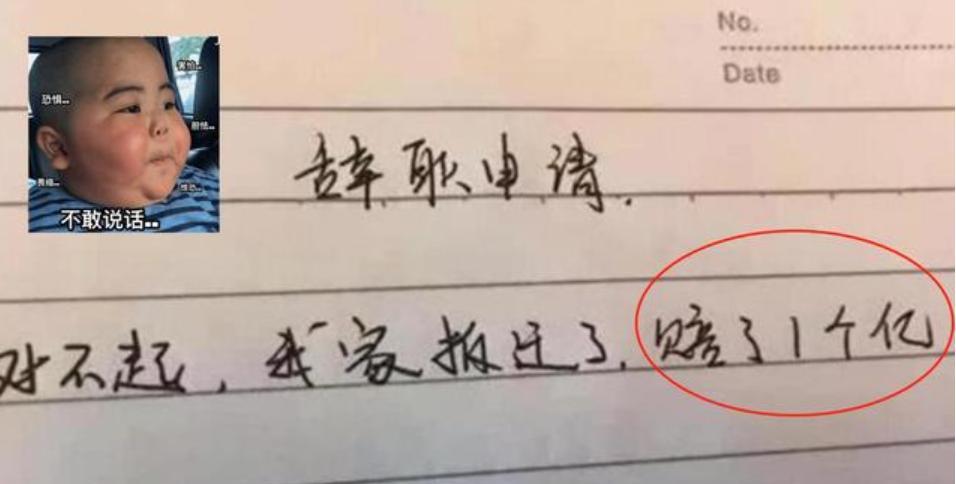 No.
Date
害怕..
恐惧..
畏缩..
不敢说话..
辞职申请.
对不起，我家拆迁了，赔了1个亿